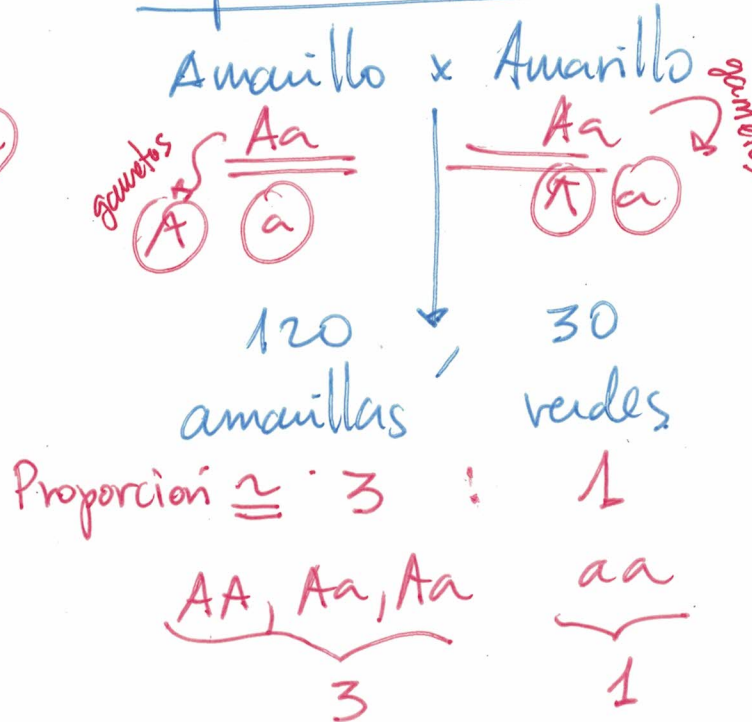 Amarillo x Amarillo
gametos Aa Aa
A a A a
120 30
amarillas, verdes
Proporción ≅ 3 : 1
AA, Aa, Aa aa
3 1